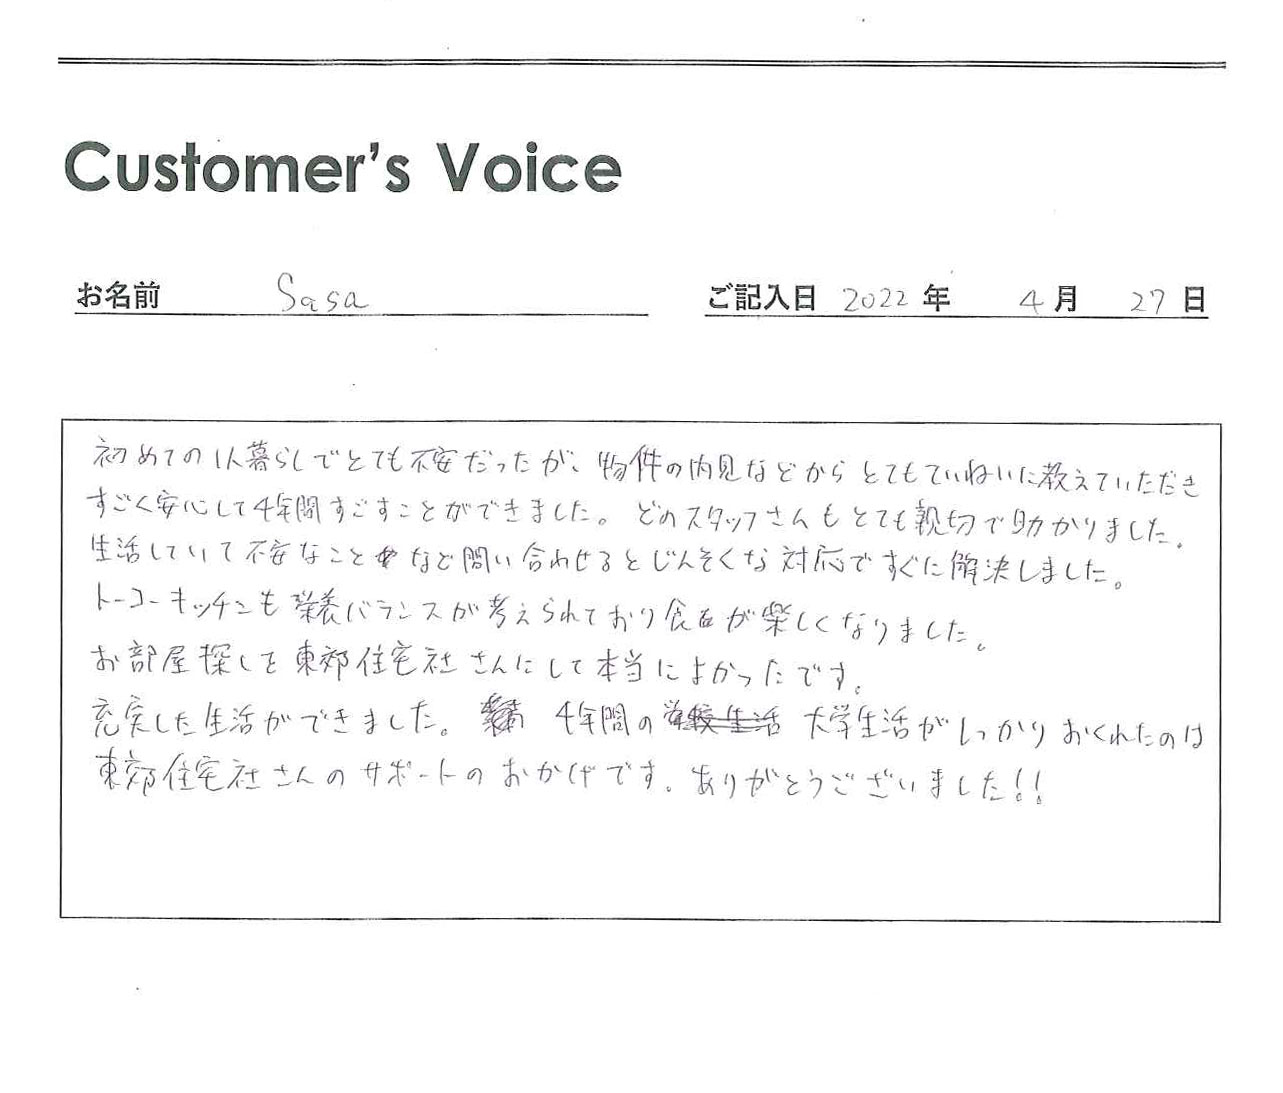 Customer's Voice
お名前 Sasa ご記入日 2022 年 4 月 27 日
初めての1人暮らしでとても不安だったが、物件の内見などからとてもていねいに教えていただき
すごく安心して4年間すごすことができました。どのスタッフさんもとても親切で助かりました。
生活していて不安なことなど問い合わせるとじんそくな対応ですぐに解決しました。
トーコーキッチンも栄養バランスが考えられており食事が楽しくなりました。
お部屋探しを東郊住宅社さんにして本当によかったです。
充実した生活ができました。 4年間の学校生活 大学生活がしっかりおくれたのは
東郊住宅社さんのサポートのおかげです。ありがとうございました!!